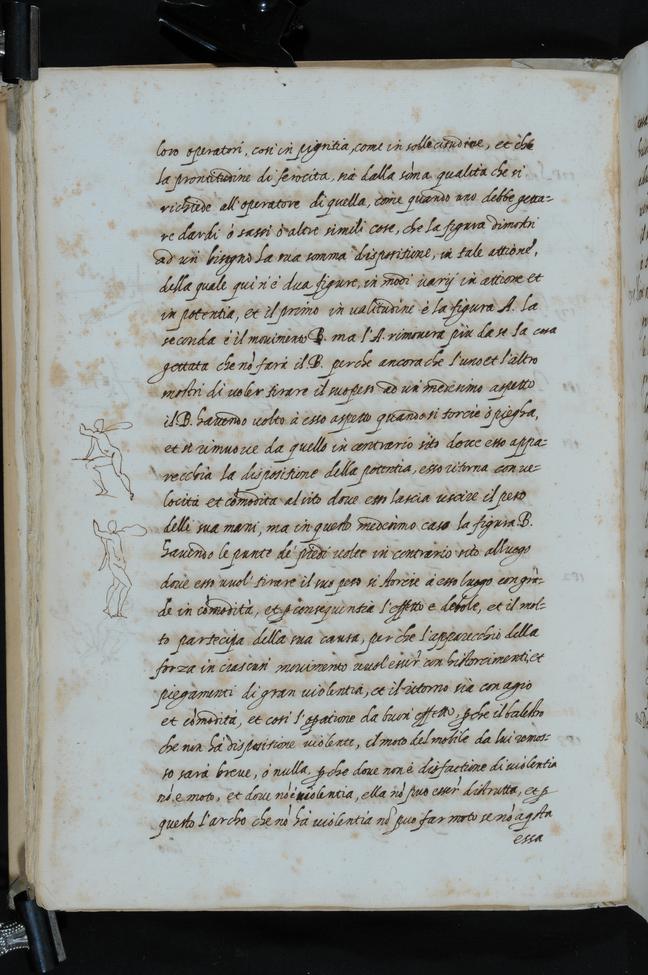 loro operatori, cosi in pigritia, come in sollecitudine, et che
la prontitudine di ferocità, sia dalla soma qualità che si
richiede all'operatore di quella, come quando uno debbe getta-
re dardi ó sassi ó altre simili cose, che la figura dimostri
ad un bisogno la sua somma dispositione, in tale attione,
della quale qui n'é dua figure, in modi varij in attione et
in potentia, et il primo in valitudine é la figura A. la
seconda é il movimento B. ma l'A. rimoverà più da se la cosa
gettata che nó farà il B. perche ancora che l'uno et l'altro
mostri di voler tirare il suo peso ad un medesimo aspetto
il B. havendo volto à esso aspetto quando si torcie ó piegha,
et si rimuove da quello in contrario sito dove esso appa-
recchia la dispositione della potentia, esso ritorna con ve-
locità et comodità al sito dove esso lascia uscire il peso
delle sua mani, ma in questo medesimo caso la figura B.
havendo le punte de' piedi volte in contrario sito al luogo
dove esso vuol tirare il suo peso si storcie à esso luogo con grã-
de in comodità, et p consequentia l'effetto e debole, et il mo-
to partecipa della sua causa, per che l'apparecchio della
forza in ciascun movimento vuol esser con bistorcimenti, et
piegamenti di gran violentia, et il ritorno sia con agio
et comodità, et cosi l'opatione da buon effetto, p che il balestro
che non ha dispositione violente, il moto del mobile da lui remos-
so sarà breve, ó nulla. p che dove non é disfactione di violentia
nó é moto, et dove nó é violentia, ella nó puo esser distrutta, et p
questo l'archo che nó ha violentia nó puo far moto se nó aqsta
essa